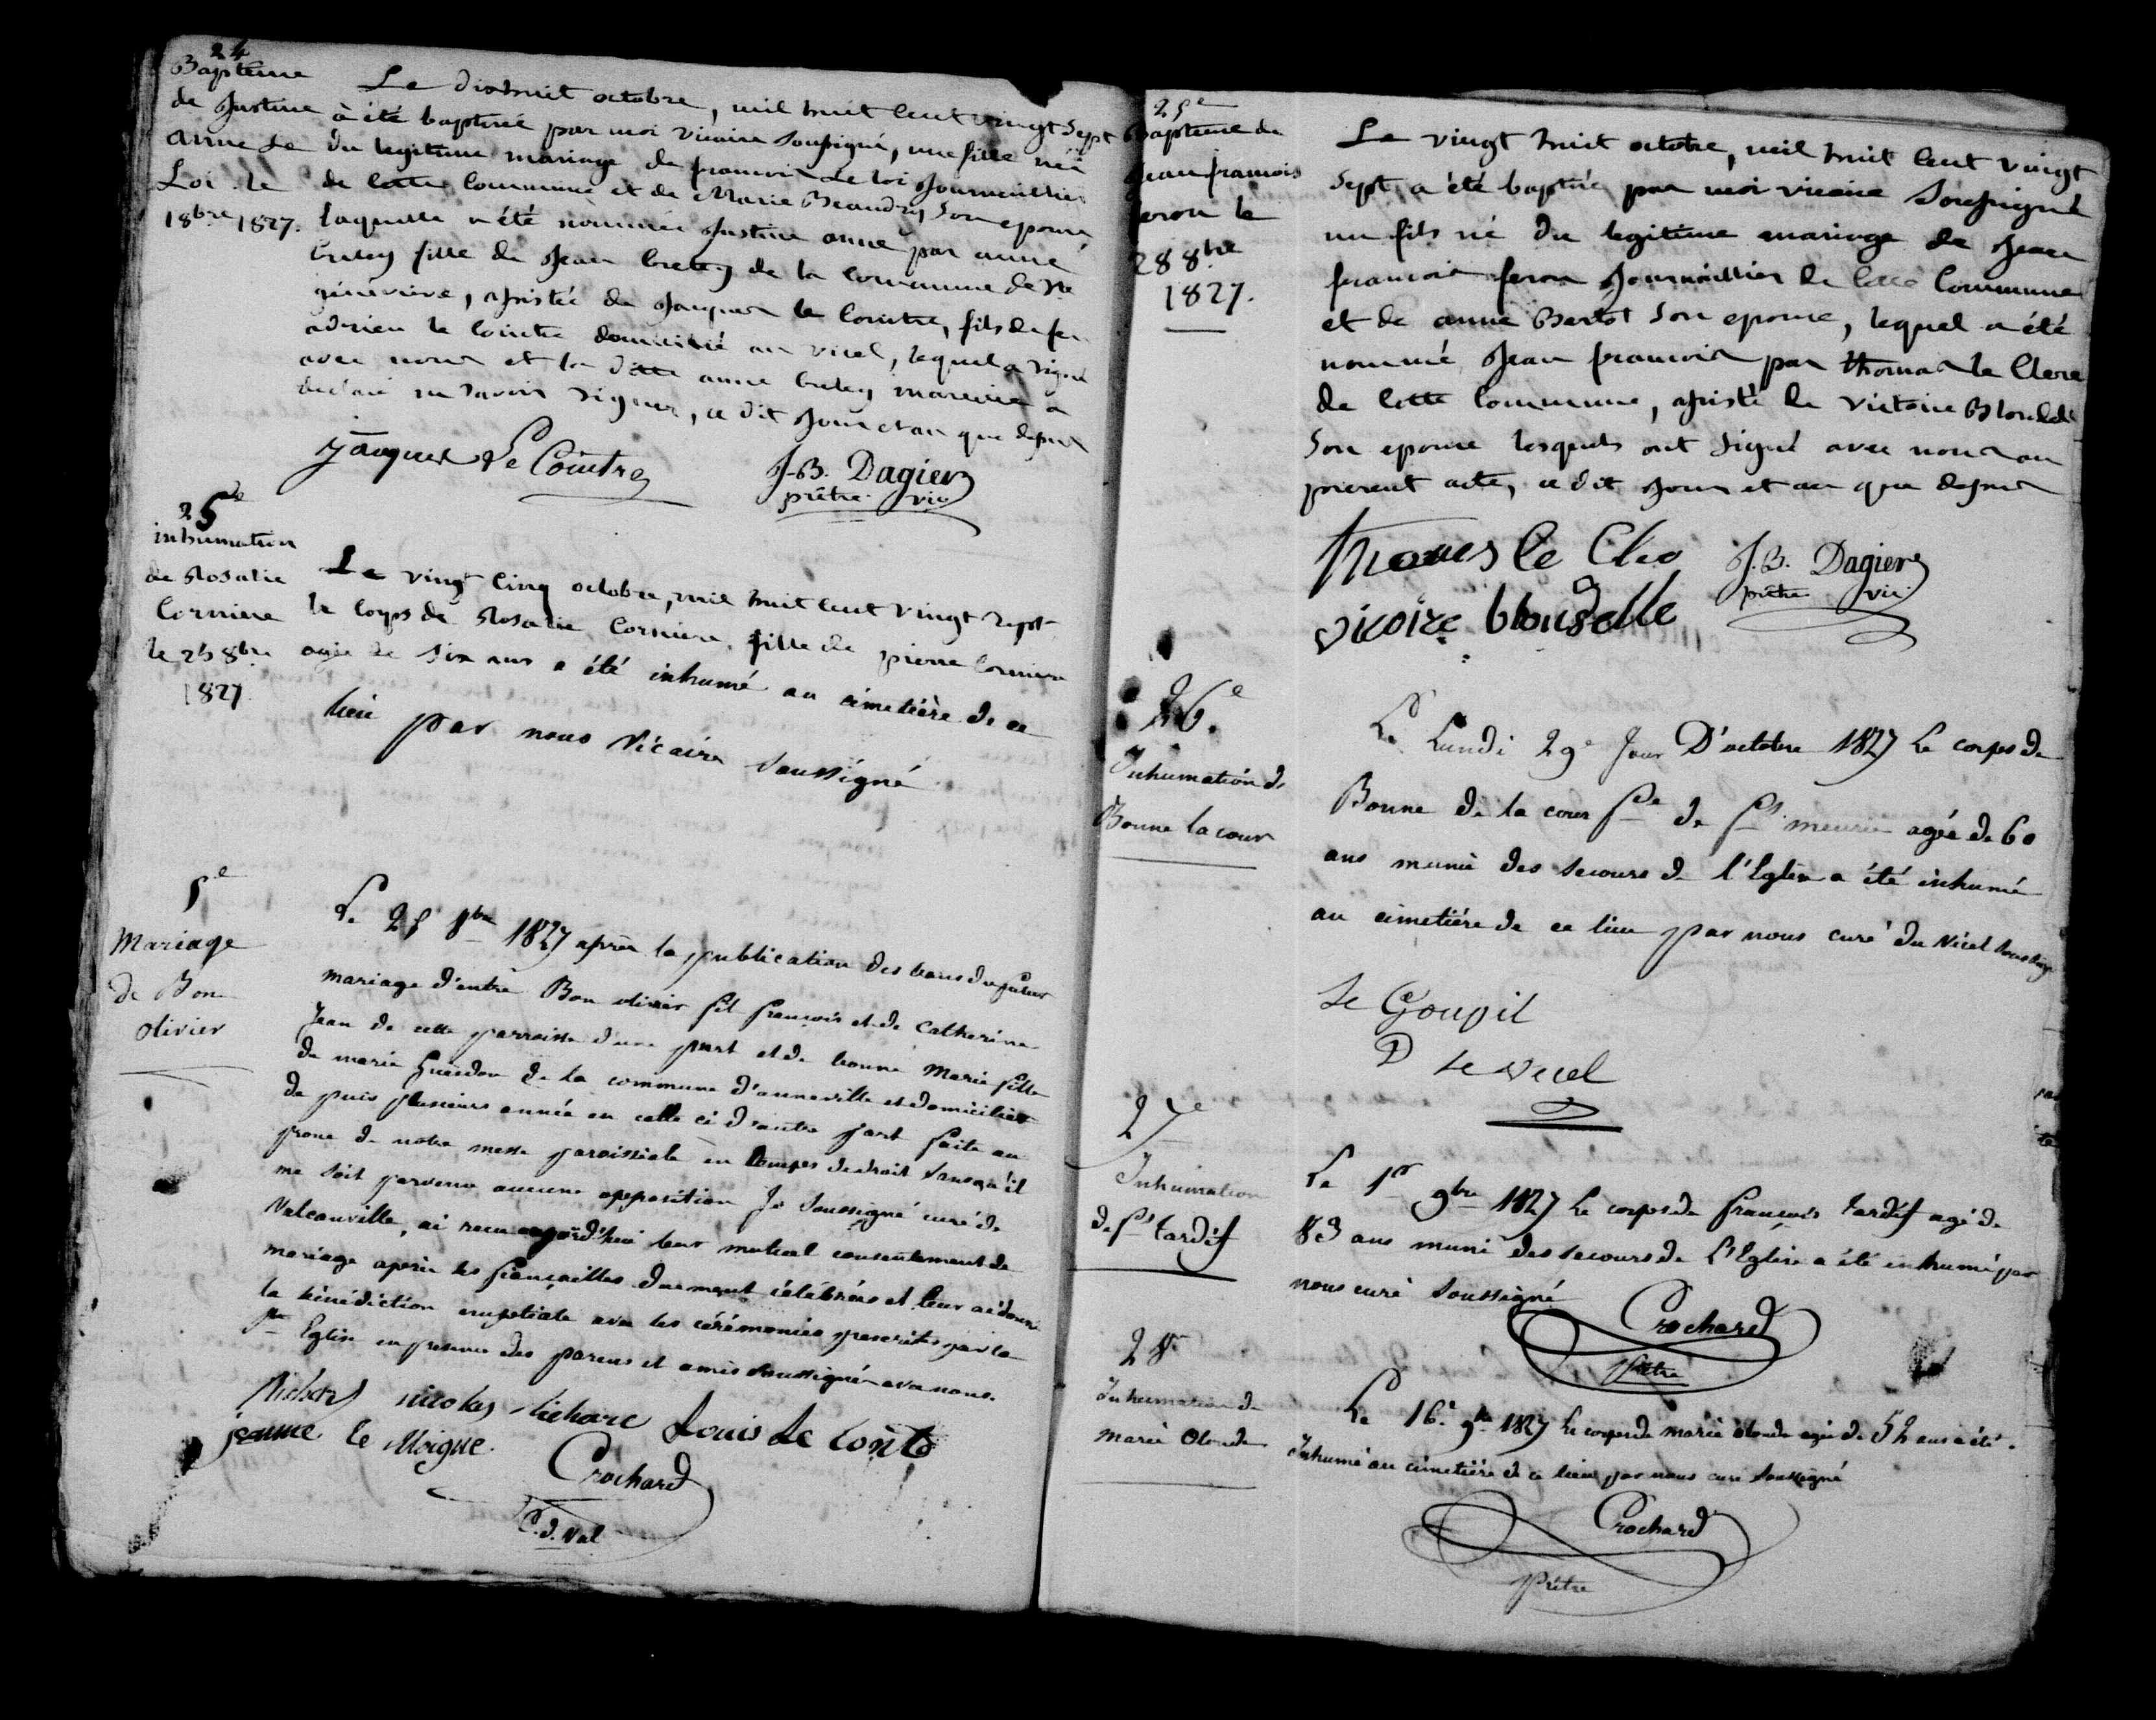 24
Baptême
de Justine
anne Le
Loi le
18bre 1827.
Le dixhuit octobre, mil huit cent vingt sept
à été baptisé par moi vicaire soussigné, une fille née
du legitime mariage de francois Le Loi Journaillier
de cette commune et de Marie Beaudry son epouse,
laquelle a été nommée Justine anne par anne
fille de Jean de la commune de Ste
géneviève, assistée de Jacques le Cointre, fils de feu
adrien le Cointre domicilié au vicel, lequel a signé
avec nous et la ditte anne mareine a
declaré ne savoir signer, ce dit jour et an que dessus
Jacques Le Cointre
J-B. Dagier
prêtre vic
25e
inhumation
de Rosalie
Corniere
le 25 8bre
1827
Le vingt cinq octobre, mil huit cent vingt sept
le corps de Rosalie Corniere, fille de pierre Corniere
agée de six ans a été inhumé au cimetière de ce
lieu par nous Vicaire soussigné
5e
Mariage
de Bon
olivier
Le 25 8bre 1827 après la publication des bans du futur
mariage d'entre Bon olivier fil françois et de Catherine
Jean de cette parroisse d'une part et de bonne Marie fille
de marie Gueidon de la commune d'anneville et domiciliée
de puis plusieurs année en celle ci d'autre part faite au
prone de notre messe paroissiale en temps de droit sans qu'il
me soit parvenu aucune opposition Je soussigné curé de
Valcanville, ai recu aujourd'hui leur mutuel consentement de
mariage après les fiançailles duement célébrées et leur ai donné
la bénédiction nuptiale avec les cérémonies prescrites par la
Ste Eglise en présence des parens et amis soussignés avec nous.
nicolas Richare Louis Le Conte
jeanne le Moigne.
Crochard
C. d. Val
25e
Baptême de
Jean francois
feron le
28 8bre
1827.
Le vingt huit octobre, mil huit cent vingt
sept, a été baptisé par moi vicaire soussigné
un fils né du legitime mariage de Jean
francois feron Journaillier de cette Commune
et de anne Bertot son epouse, lequel a été
nommé Jean francois par thomas le Clerc
de cette commune, assisté de victoire Blondelle
son epouse lesquels ont signé avec nous au
present acte, ce dit jour et an que dessus
Thomas le Cler
J. B. Dagier
prêtre vic.
vicoire blondelle
26e
Inhumation de
Bonne la cour
Le Lundi 29e Jour D'octobre 1827 Le corps de
Bonne de la cour fe de fs. agée de 60
ans munie des secours de l'Eglise a été inhumé
au cimetière de ce lieu par nous curé du Vicel soussigné
Le Goupil
D le vicel
27e
Inhumation
de fs tardif
Le 1er 9bre 1827 Le corps de François tardif agé de
83 ans muni des secours de L'Eglise a été inhumé par
nous curé soussigné
Crochard
Prêtre
28e
Inhumation de
marie Olonde
Le 16e 9bre 1827 Le corps de marie olonde agée de 52 ans a été
Inhumé au cimetière de ce lieu par nous curé soussigné
Crochard
Prêtre